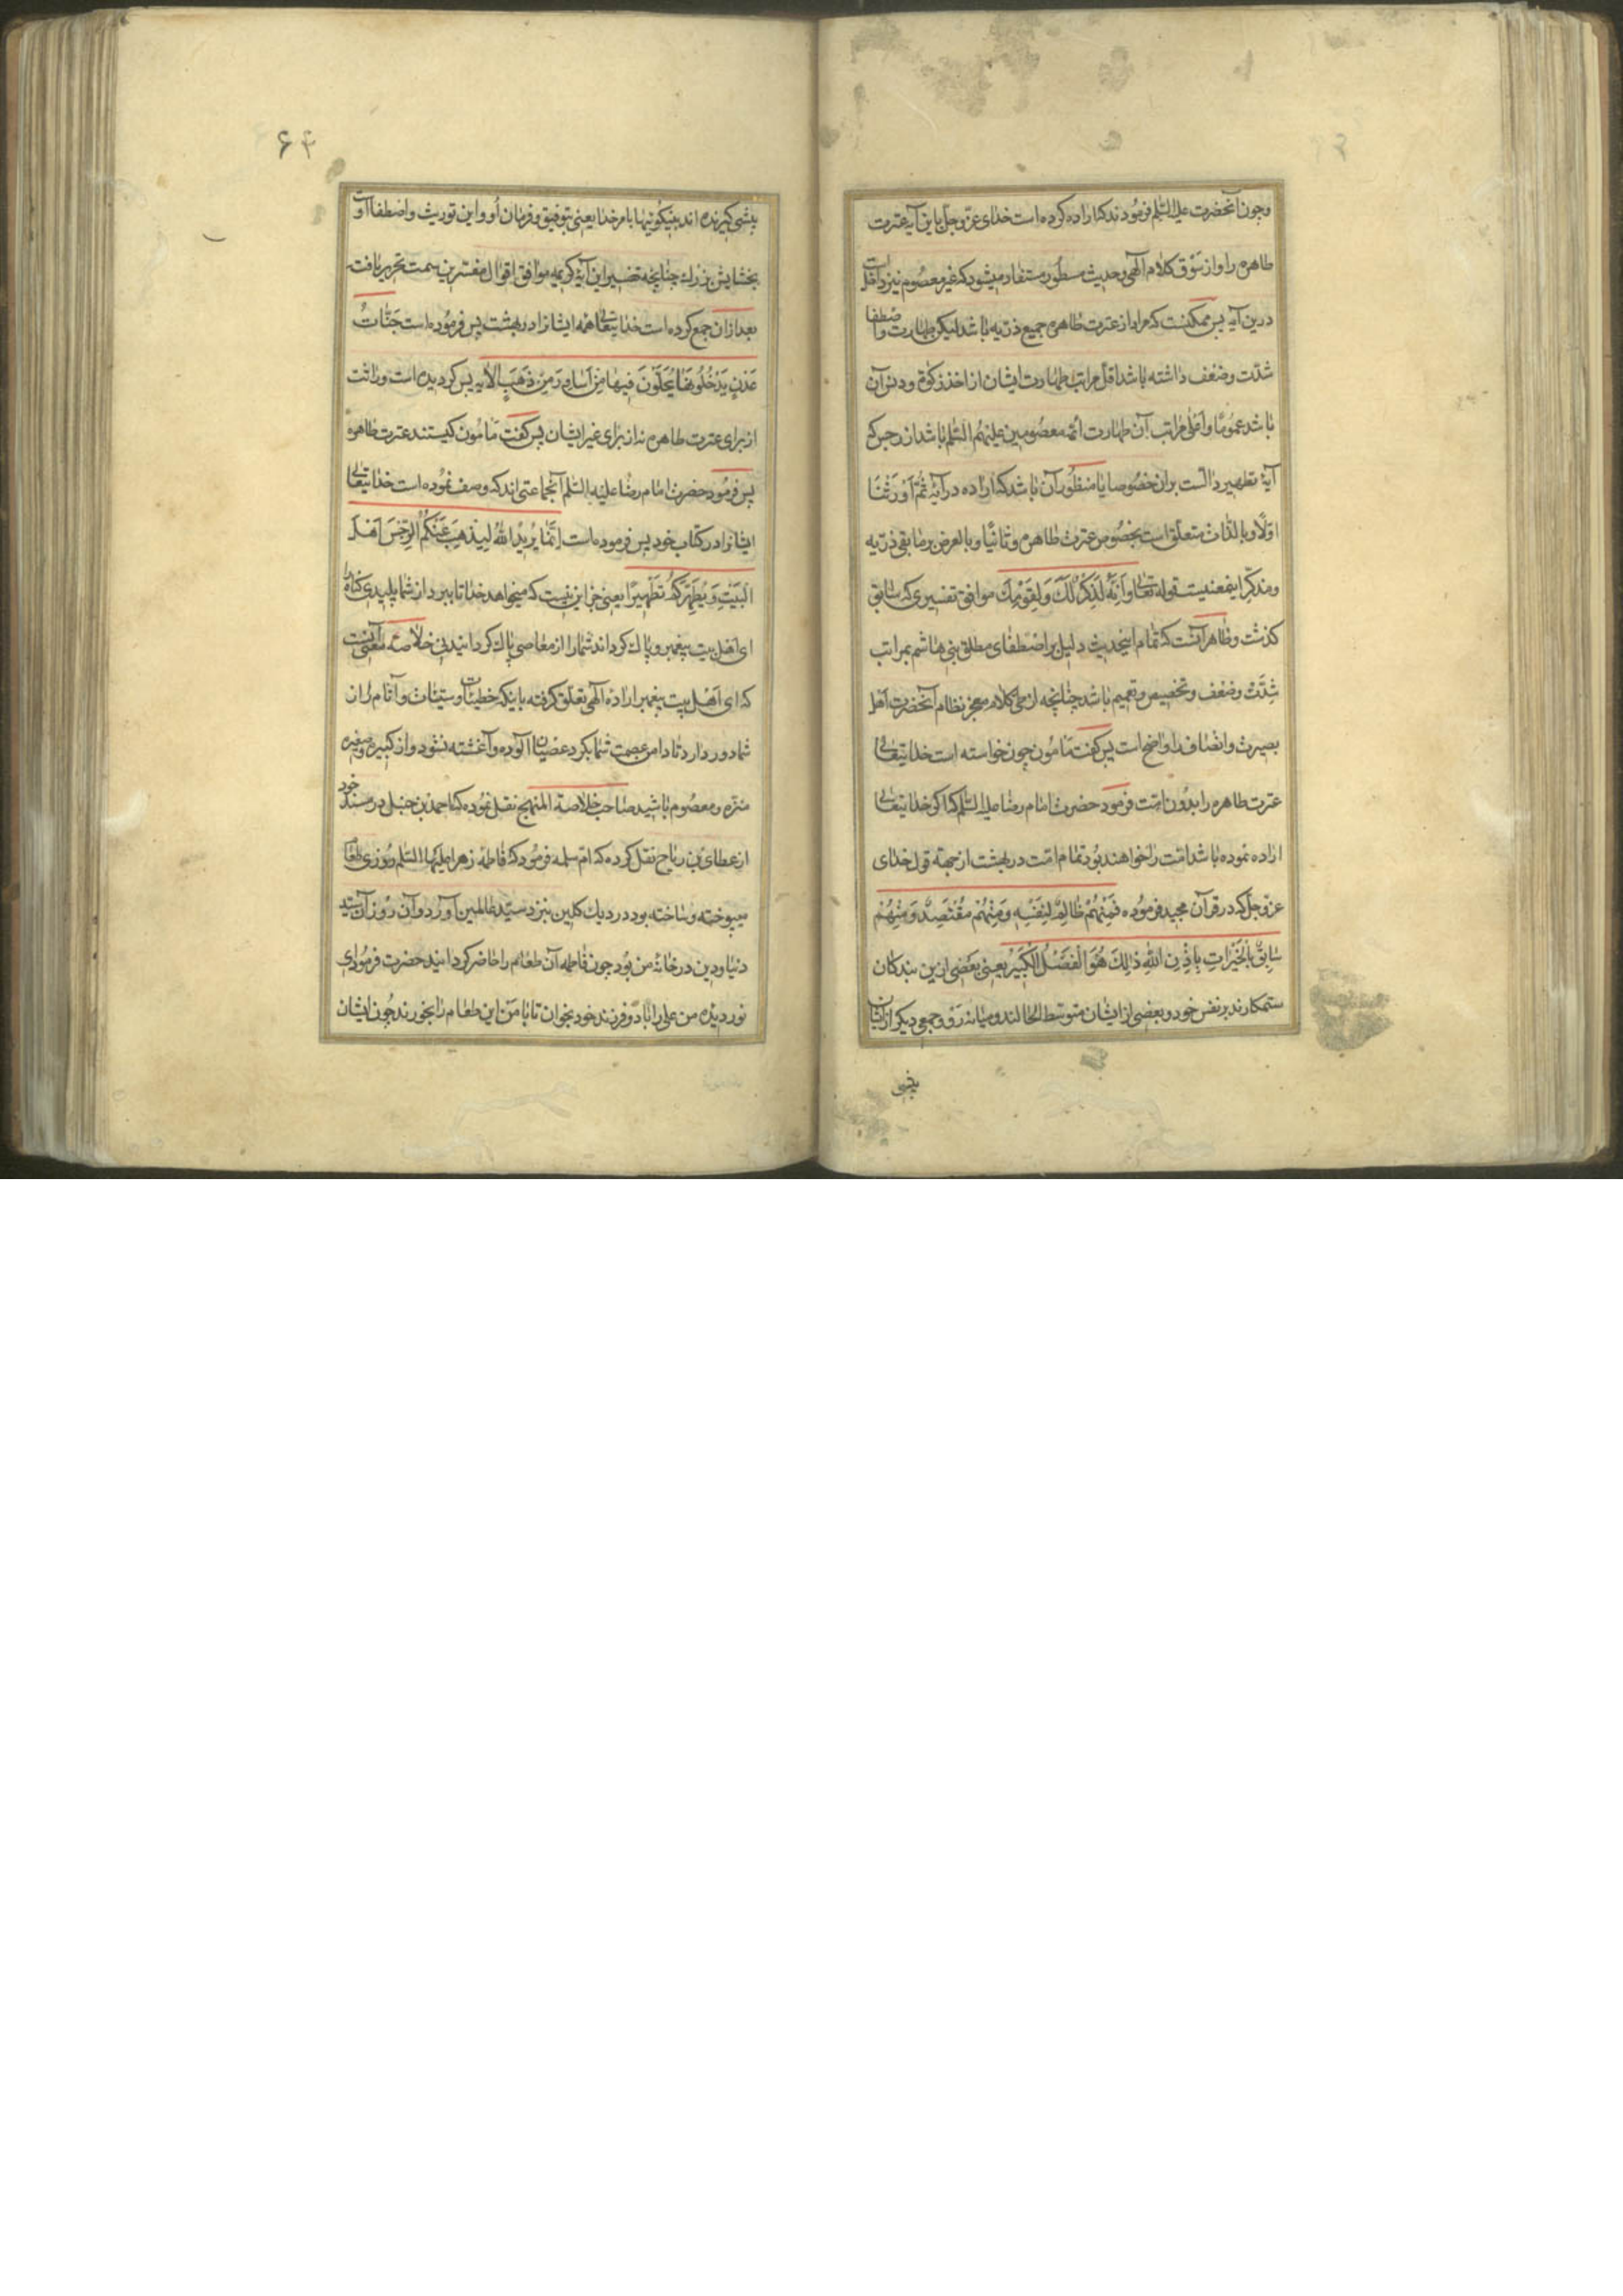 و چون آنحضرت علیه السّلم فرمودند که اراده کرده است خدای عزّ و جلّ باین آیه عترت
طاهره را و از سَوْق کلام آلهی و حدیث مسطور مستفاد میشود که غیر معصوم نیز داخل است
درین آیه پس ممکنست که مراد از عترت طاهره جمیع ذریه باشد لیکن طهارت و اصطفا
شدّت و ضعف داشته باشد اقلّ مراتب طهارت ایشان از اخذ زکوة و دون آن
باشد عمومًا و اعلی مراتب آن طهارت ائمه معصومین علیهم السّلم باشد از رجس که
آیهٔ تطهیر دالست بران خصوصا یا منظور آن باشد که اراده در آیهٔ ثُمَّ اَوْرَثْنَا
اوّلًا و بالذّات متعلّق است بخصوص عترت طاهره و ثانیًا و بالعرض بر مابقی ذریّه
و مذکّر اینمعنیست قوله تعالی وَاِنَّهُ لَذِكْرٌ لَكَ وَ لِقَوْمِكَ موافق تفسیری که سابق
کذشت و ظاهر آنست که تمام اینحدیث دلیل بر اصطفای مطلق بنی هاشم بمراتب
شِدَّتْ و ضعف و تخصیص و تعمیم باشد چنانچه از طی کلام معجز نظام آنحضرت اهل
بصیرت و انصاف را واضح است پس کفت مَامون چون خواسته است خدایتعالی
عترت طاهره را بدون امّت فرمود حضرت امام رضا علیه السّلم که اکر خدایتعالی
اراده نموده باشد امّت را خواهند بود تمام امّت در بهشت از جهة قول خدای
عزّ و جلّ که در قرآن مجید فرموده فَمِنْهُمْ ظَالِمٌ لِنَفْسِهِ وَمِنْهُمْ مُقْتَصِدٌ وَ مِنْهُمْ
سَابِقٌ بِالْخَيْرَاتِ بِاِذْنِ اللّٰهِ ذٰلِكَ هُوَ الْفَضْلُ الْكَبِيرُ یعنی بعضی ازین بندکان
ستمکارند بر نفس خود و بعضی از ایشان متوسّط الحالند و میانه رَوْ و جمعی دیکر از ایشان
پیشی
۶۴
پیشی کیرنده اند بنیکوئیها بامر خدا یعنی بتوفیق و فرمان اُو و این توریث و اصطفا اوست
بخشایش بزرك چنانچه تفسیر این آیهٔ کریمه موافق اقوال مفسّرین سمت تحریر یافت
بعد ازان جمع کرده است خدایتعالی همه ایشانرا در بهشت پس فرموده است جَنّٰاتُ
عَدْنٍ يَدْخُلُونَهَا يُحَلَّوْنَ فِيهَا مِنْ اَسَاوِرَ مِنْ ذَهَبٍ الآیه پس کردیده است وراثت
از برای عترت طاهره نه از برای غیر ایشان پس کفت مَامون کیستند عترت طاهره
پس فرمود حضرت امام رضا علیه السّلم آنجماعتی اند که وصف نموده است خدایتعالی
ایشانرا در کتاب خود پس فرموده است اِنَّمَا يُرِيدُ اللّٰهُ لِيُذْهِبَ عَنْكُمُ الرِّجْسَ اَهْلَ
الْبَيْتِ وَ يُطَهِّرَكُمْ تَطْهِيرًا یعنی جز این نیست که میخواهد خدا تا ببرد از شما پلیدی کناه را
ای اهل بیت پیغمبر و پاك کرداند شما را از معاصی پاك کردانیدنی خلاصه معنی آنست
که ای اَهْل بیت پیغمبر ارادهٔ آلهی تعلّق کرفته باینکه خطیئات و سیّئات و آثام را از
شما دور دارد تا دامن عصمت شما بکرد عصیان آلوده و آغشته نشود و از کبیره و صغیره
منزّه و معصوم باشید صاحب خلاصة المنهج نقل نموده که احمد بن حنبل در مسند خود
از عطای بن رباح نقل کرده که امّ سلمه فرمود که فاطمهٔ زهرا علیها السّلم روزی طعامی
میپوخته و ساخته بود در دیك کلین بنزد سیّد عالمین آورد و آن روز آن سیّد
دنیا و دین در خانهٔ من بود چون فاطمه آن طعام را حاضر کردانید حضرت فرمود ای
نور دیدهٔ من علی را با دو فرزند خود بخوان تا با من این طعام را بخورند چون ایشان